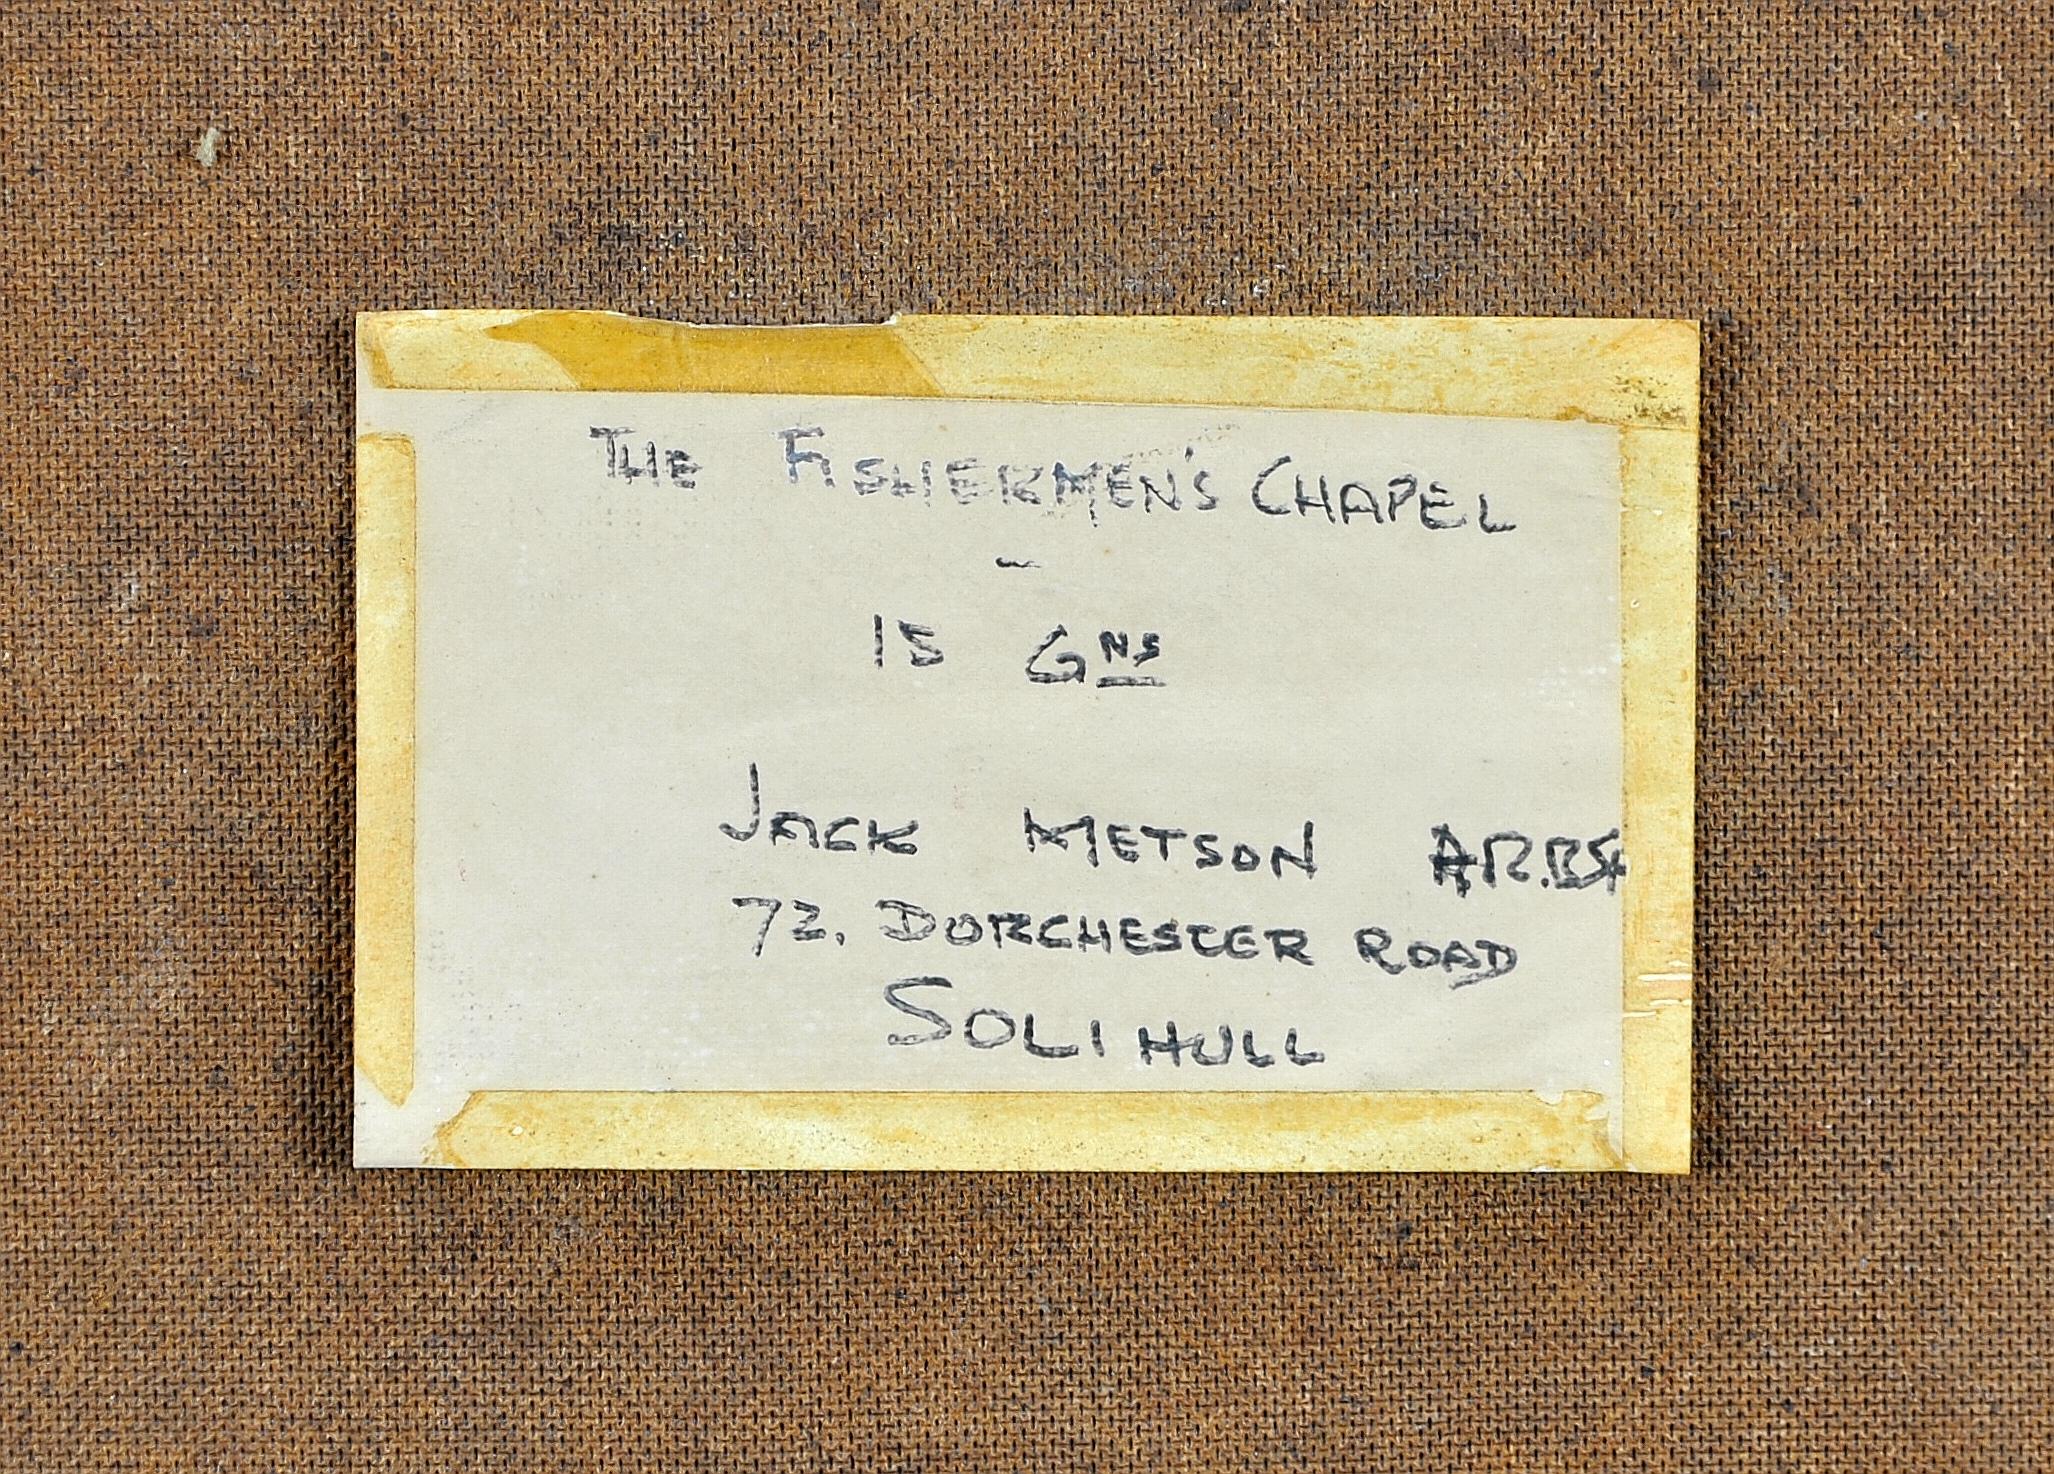 THE FISHERMEN'S CHAPEL
-
15 GNS
JACK METSON A.R.B.S.A
72, DORCHESTER ROAD
SOLIHULL